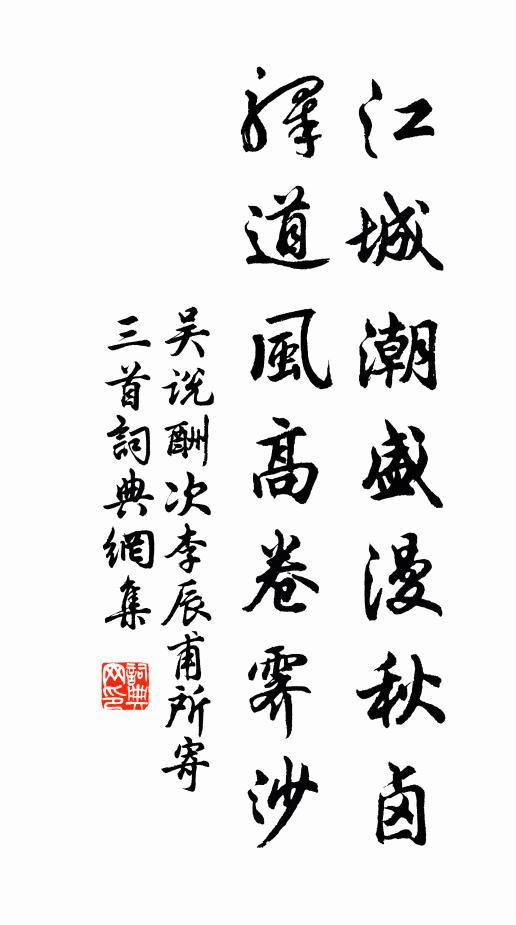 江城潮盛漫秋卤
驛道風高卷霽沙
吴说酬次李辰甫所寄
三首詞典網集
詞典
网印